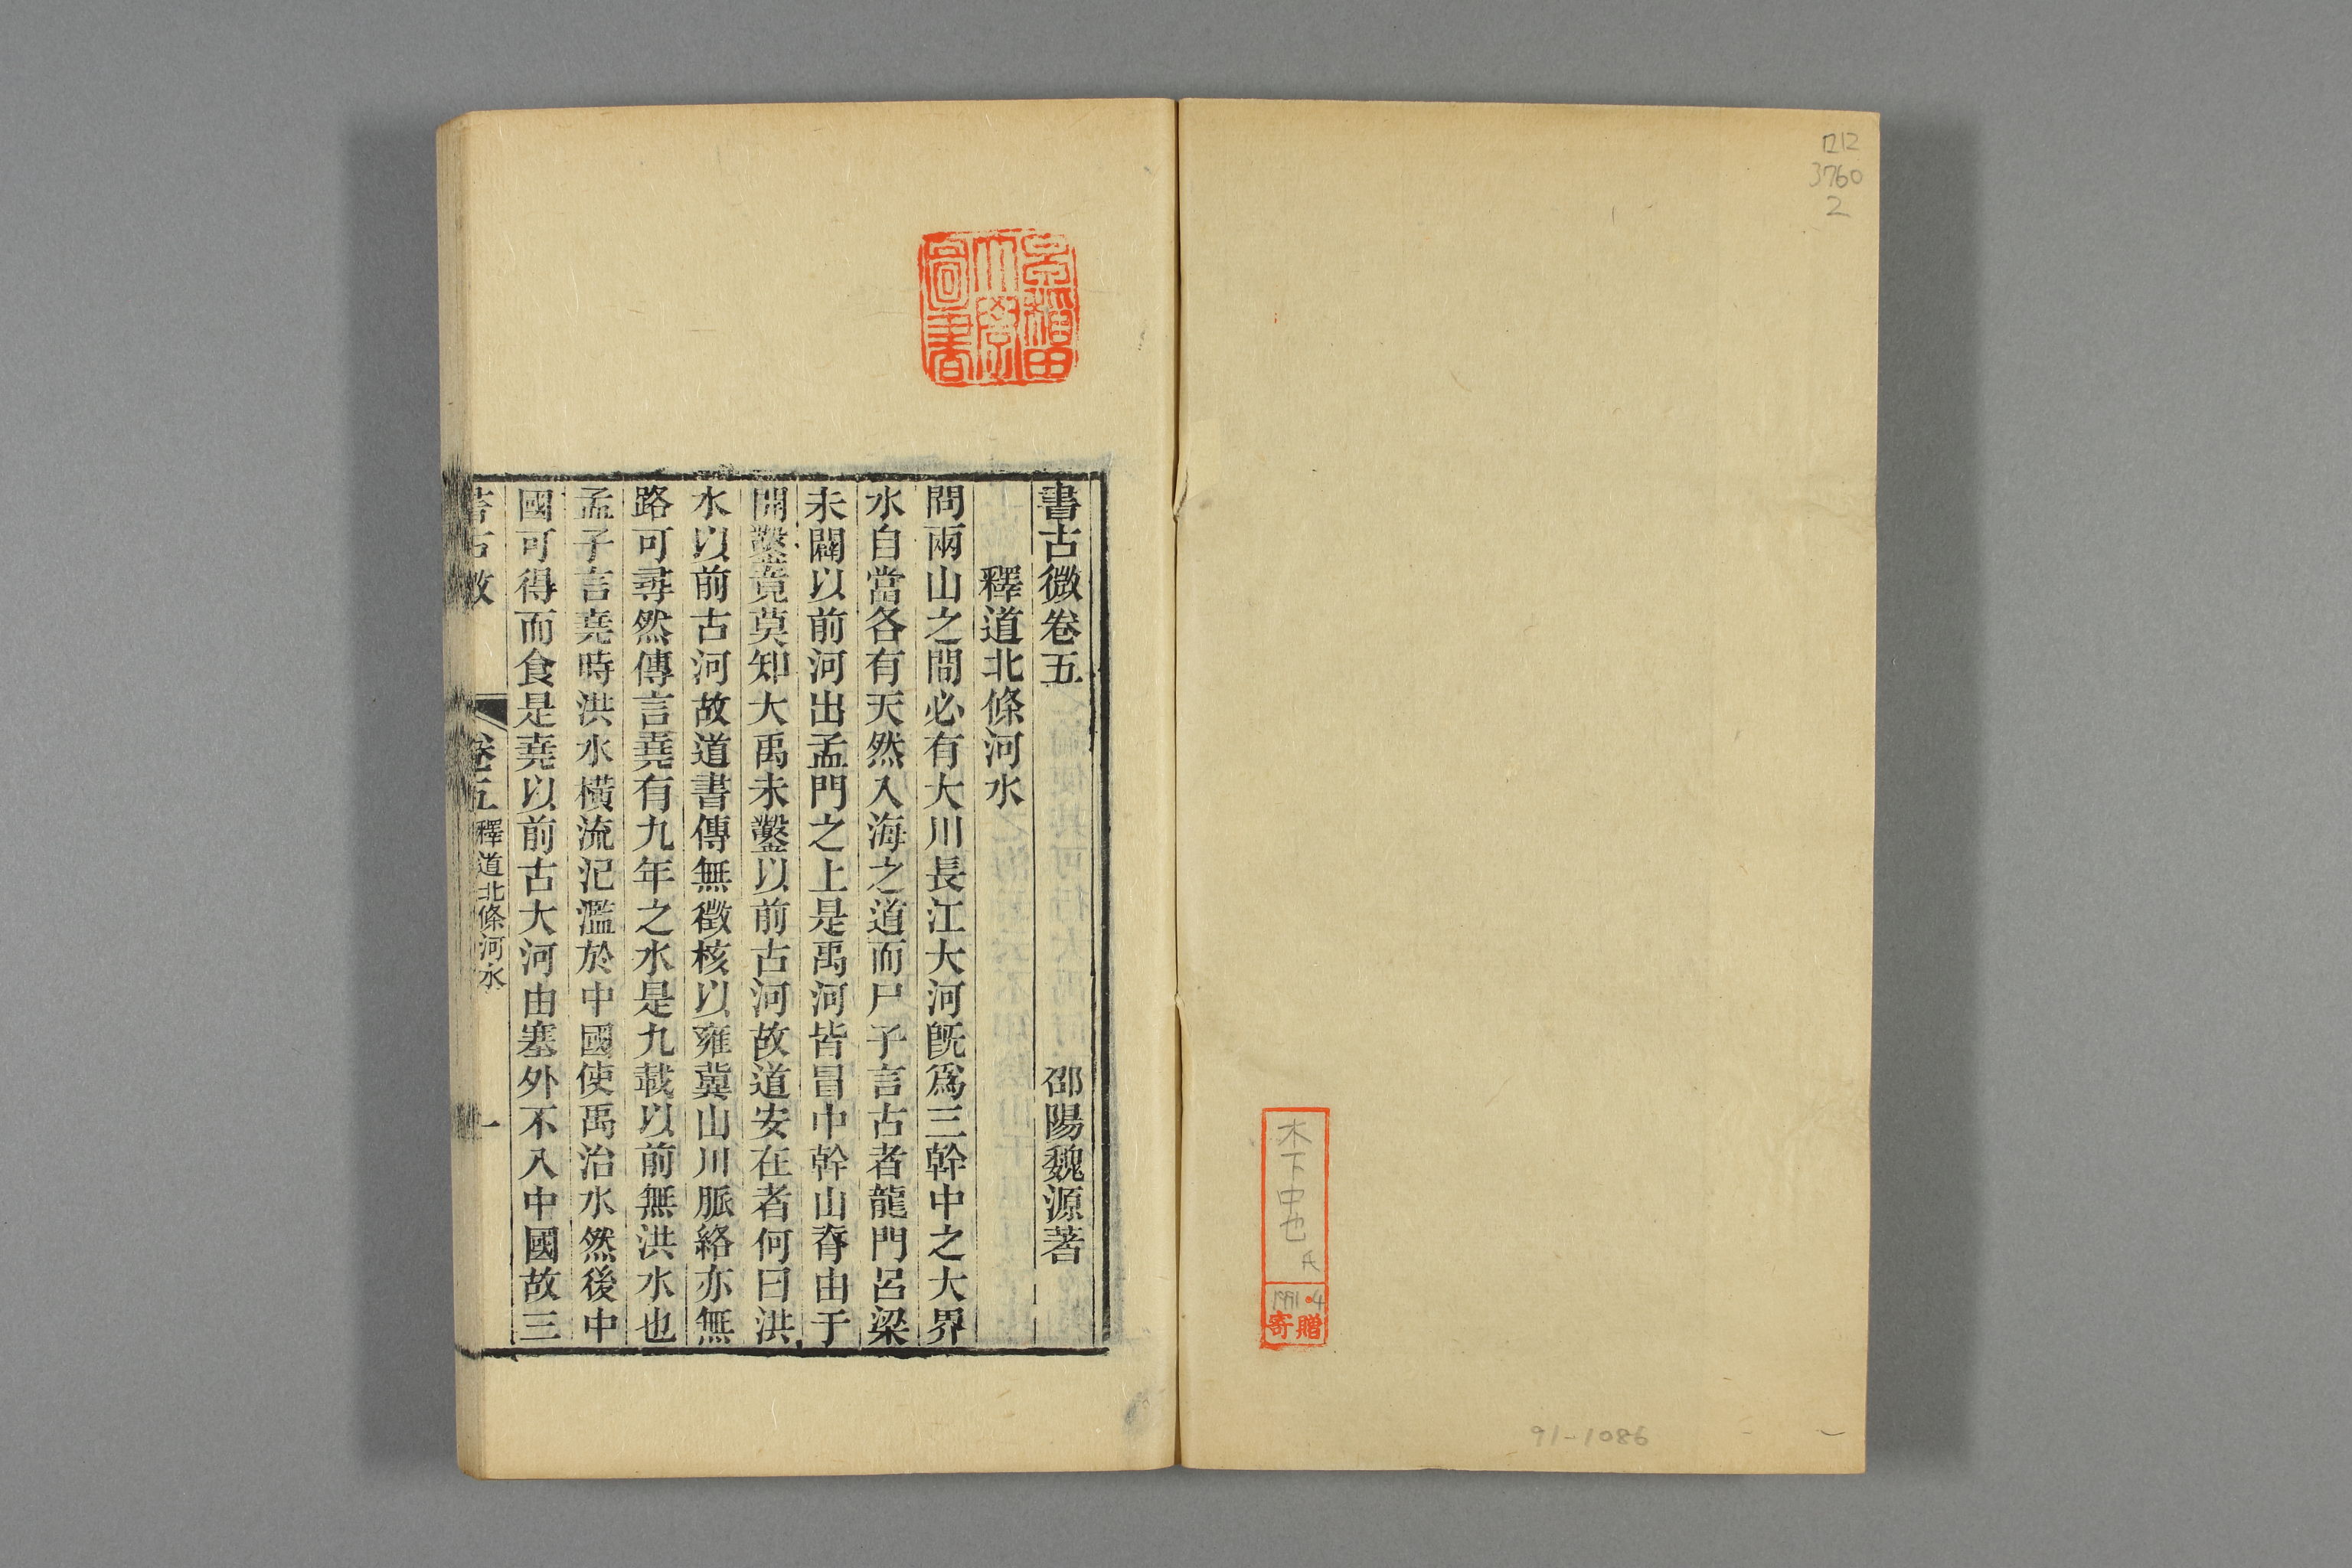 ロ12
3760
2
木下中也氏
1991・4
寄贈
91-1086
早稲田
大學
圖書
書古微卷五 邵陽魏源著
釋道北條河水
問兩山之間必有大川長江大河既爲三幹中之大界
水自當各有天然入海之道而尸子言古者龍門呂梁
未闢以前河出孟門之上是禹河皆冒中幹山脊由于
開鑿竟莫知大禹未鑿以前古河故道安在者何曰洪
水以前古河故道書傳無徵核以雍冀山川脈絡亦無
路可尋然傳言堯有九年之水是九載以前無洪水也
孟子言堯時洪水橫流氾濫於中國使禹治水然後中
國可得而食是堯以前古大河由塞外不入中國故三
卷五 釋道北條河水 一